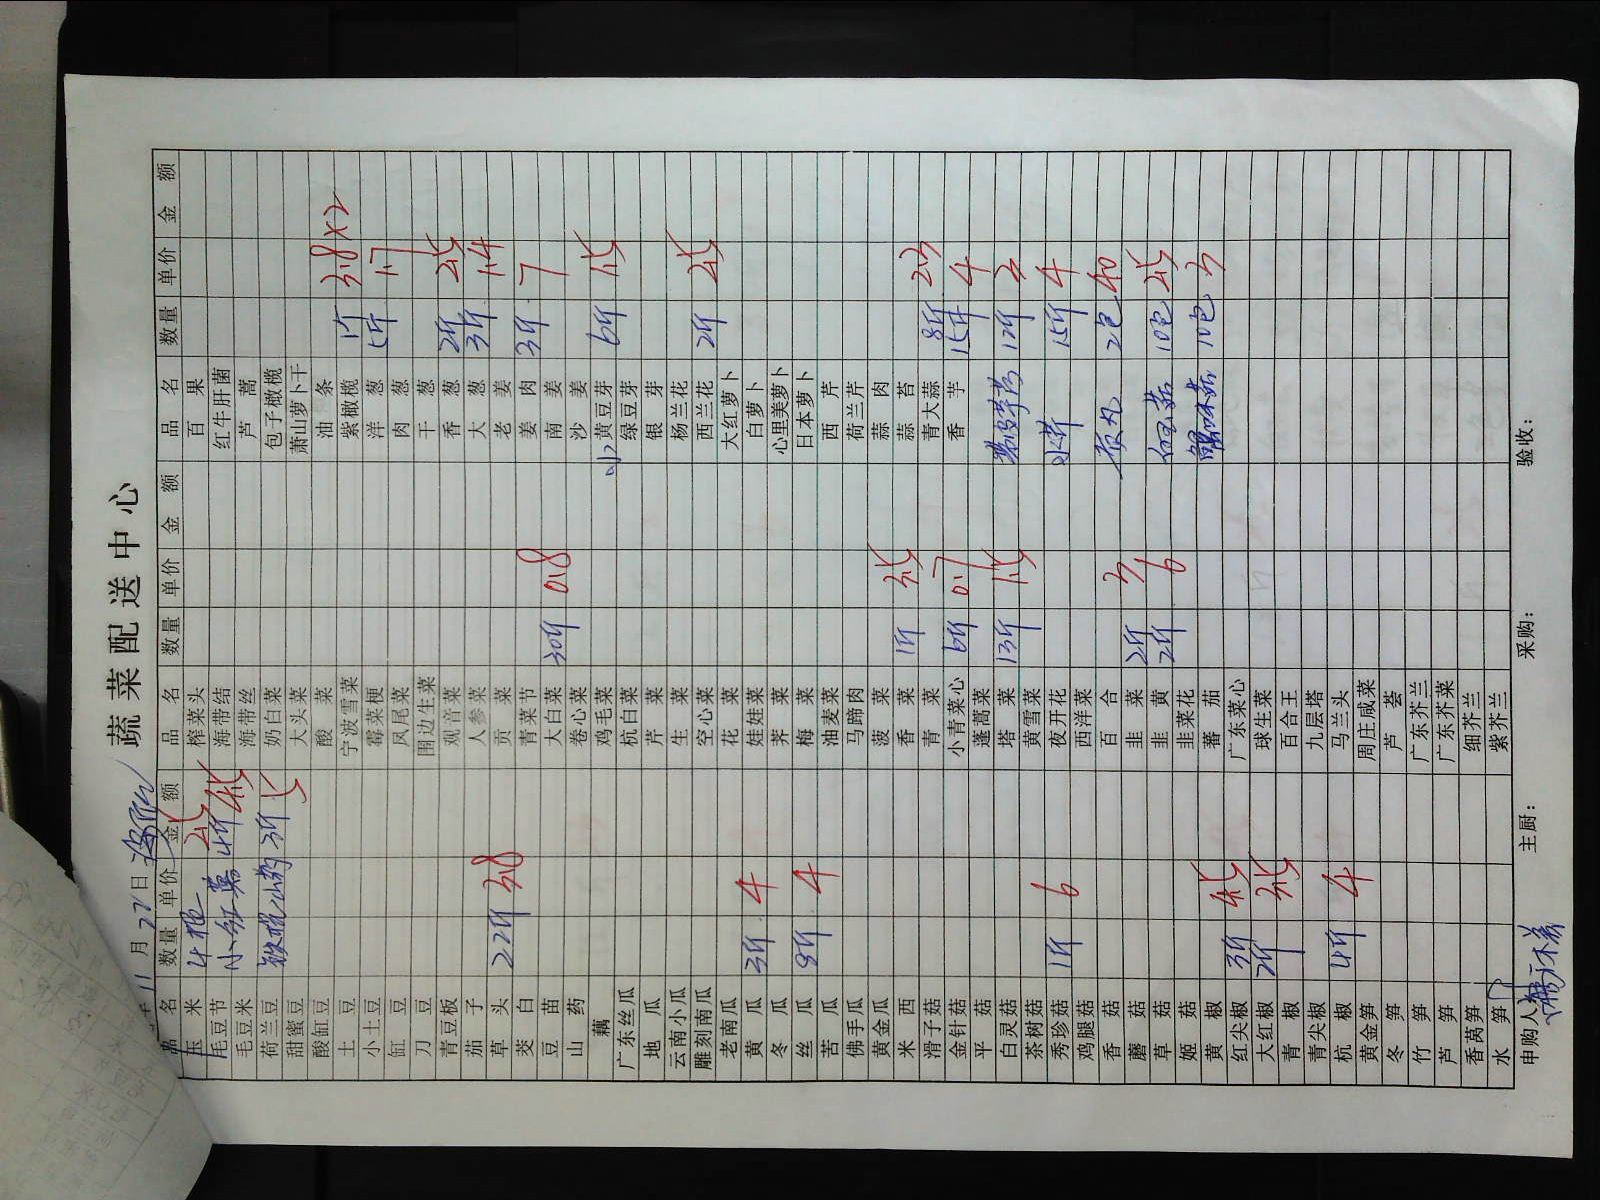 蔬菜配送中心
11月27日
品名 数量 单价 金额 品名 数量 单价 金额 品名 数量 单价 金额
玉米 4根 2.5 榨菜头 百果
毛豆节 小红葱 4斤 4.5 海带结 红牛肝菌
毛豆米 海带丝 芦蒿
荷兰豆 铁棍山药 3斤 5 奶白菜 包子橄榄
甜蜜豆 大头菜 萧山萝卜干
酸缸豆 酸菜 油条
土豆 宁波雪菜 紫橄榄 1斤 3.8×2
小土豆 霉菜梗 洋葱 5斤 1.7
缸豆 凤尾菜 肉葱
刀豆 围边生菜 干葱
青豆板 观音菜 香葱 2斤 2.5
茄子 人参菜 大葱 3斤 1.4
草头 22斤 3.8 贡菜 老姜
茭白 青菜节 姜肉 3斤 7
豆苗 大白菜 30斤 0.8 南姜
山药 卷心菜 沙姜
藕 鸡毛菜 小黄豆芽 6斤 1.5
广东丝瓜 杭白菜 绿豆芽
地瓜 芹菜 银芽
云南小瓜 生菜 杨兰花
雕刻南瓜 空心菜 西兰花 2斤 2.5
老南瓜 花菜 大红萝卜
黄瓜 3斤 4 娃娃菜 白萝卜
冬瓜 荠菜 心里美萝卜
丝瓜 8斤 4 梅菜 日本萝卜
苦瓜 油麦菜 西芹
佛手瓜 马蹄肉 荷兰芹
黄金瓜 菠菜 蒜肉
米西 香菜 1斤 3.5 蒜苔
滑子菇 青菜 青大蒜 8斤 2.3
金针菇 小青菜心 6斤 0.7 香芋 15斤 4
平菇 蓬蒿菜
白灵菇 塔菜 13斤 1.5 12斤 2
茶树菇 黄雪菜
秀珍菇 1斤 6 夜开花 水芹 15斤 4
鸡腿菇 西洋菜
香菇 百合 2包 40
蘑菇 韭菜 2斤 3
草菇 韭黄 2斤 6 白玉菇 10包 2.5
姬菇 韭菜花
黄椒 蕃茄 蟹味菇 10包 3
红尖椒 3斤 4.5 广东菜心
大红椒 2斤 3.5 球生菜
青椒 百合王
青尖椒 九层塔
杭椒 4斤 4 马兰头
黄金笋 周庄咸菜
冬笋 芦荟
竹笋 广东芥兰
芦笋 广东芥菜
香莴笋 细芥兰
水笋 紫芥兰
申购人: 主厨: 采购: 验收: